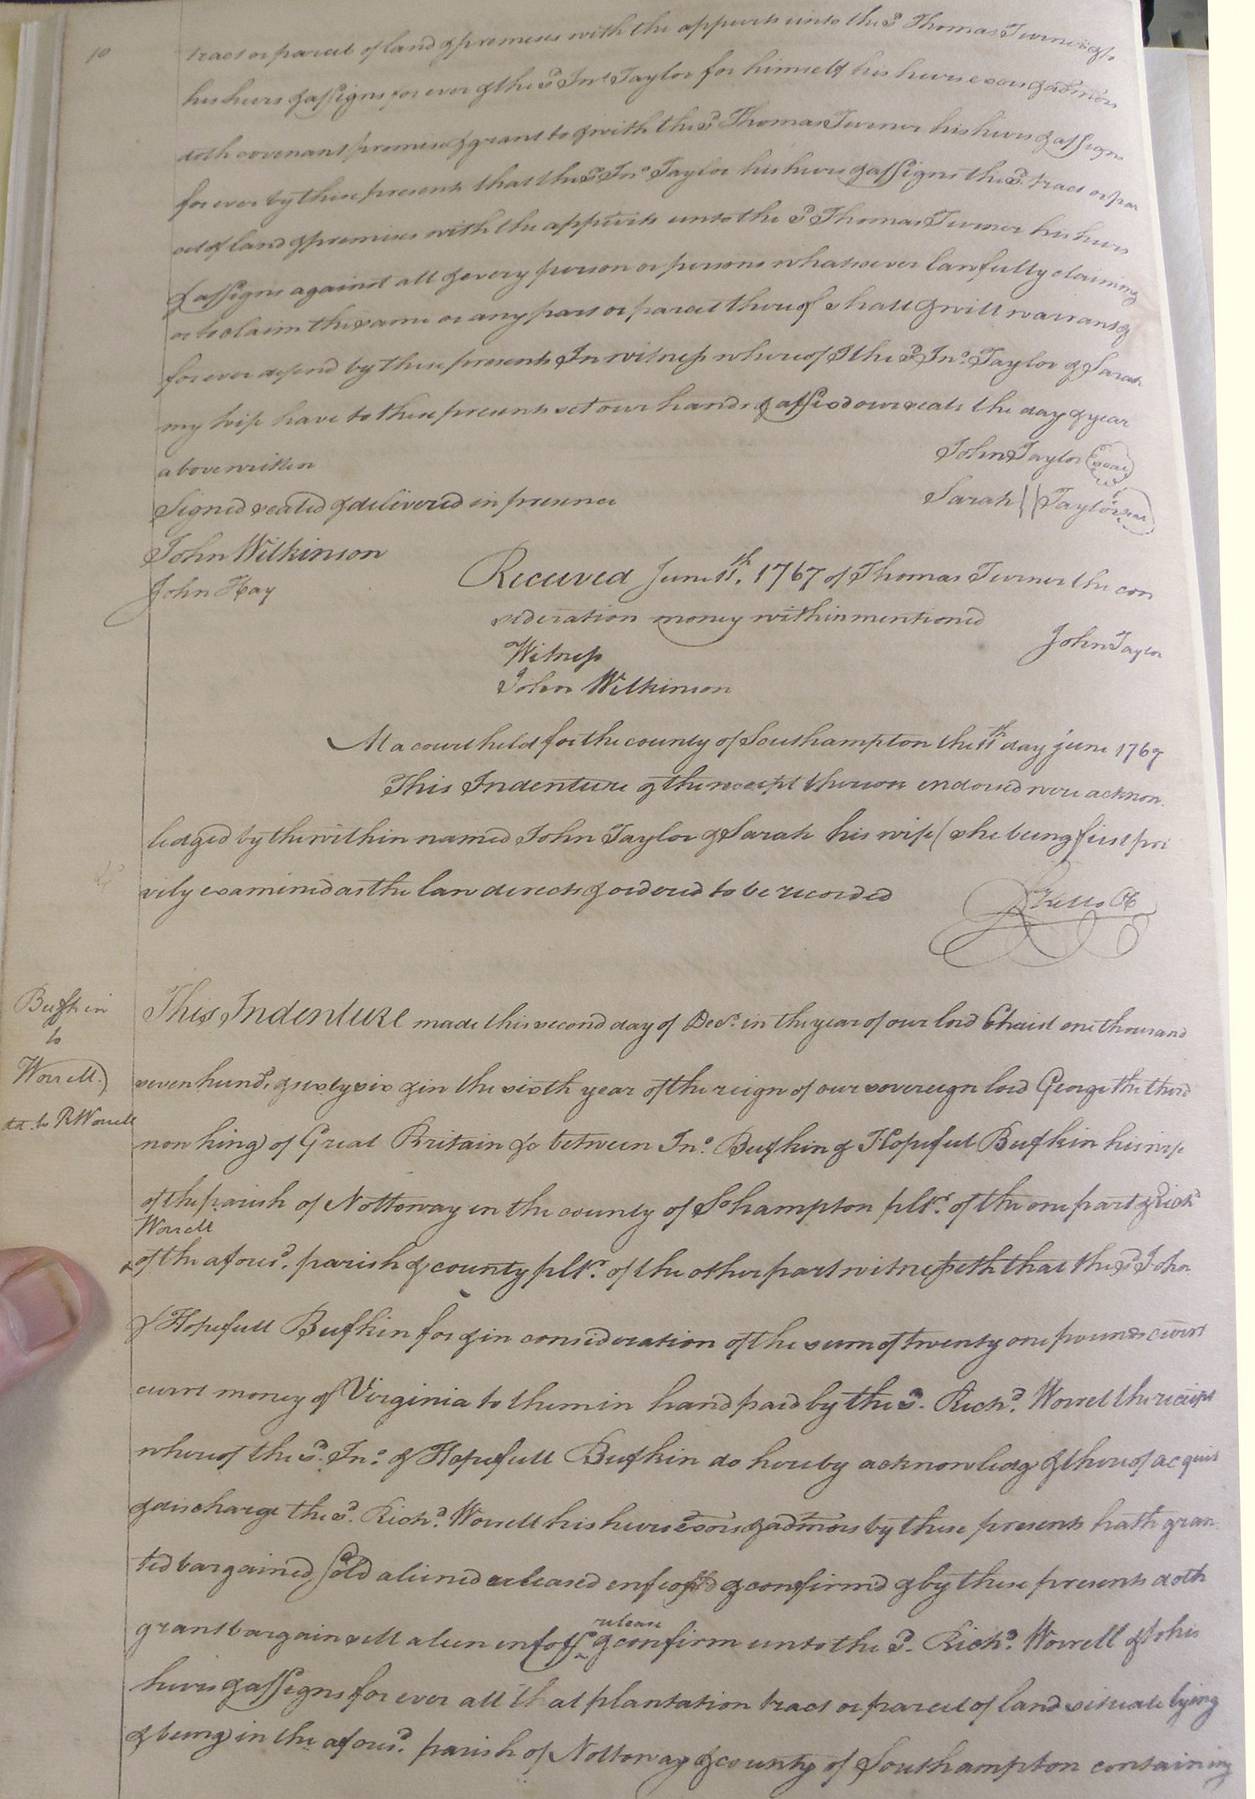 10
tract or parcel of land & premises with the appurts unto the sd Thomas Turner & to
his heirs & assigns for ever & the sd Jno Taylor for himself his heirs exors & admors
doth covenant promise & grant to & with the sd Thomas Turner his heirs & assigns
for ever by these presents that the sd Jno Taylor his heirs & assigns the sd tract or par
cel of land & premises with the appurts unto the sd Thomas Turner his heirs
& assigns against all & every person or persons whatsoever lawfully claiming
or to claim the same or any part or parcel thereof shall & will warrant &
for ever defend by these presents In witness whereof I the sd Jno Taylor & Sarah
my wife have to these presents set our hands & affixd our seals the day & year
above written
John Taylor (seal)
Signed sealed & delivered in presence
Sarah || Taylor (seal)
John Wilkinson
John Hay
Received June 11th, 1767 of Thomas Turner the con
sideration money within mentioned
John Taylor
Witness
John Wilkinson
At a court held for the county of Southampton the 11th day june 1767
This Indenture & the receipt thereon endorsed were acknow
ledged by the within named John Taylor & Sarah his wife (she being first pri
vily examined as the law directs & ordered to be recorded
Bufkin
to
Worrell
to R Worrell
This Indenture made this second day of Decr. in the year of our lord Christ one thousand
seven hund. & sixty six & in the sixth year of the reign of our sovereign lord George the third
now king of Great Britain &c between Jno. Bufkin & Hopefull Bufkin his wife
of the parish of Nottoway in the county of Sohampton pltr. of the one part & Richd
Worrell
of the aforesd. parish & county pltr. of the other part witnesseth that the sd John
& Hopefull Bufkin for & in consideration of the sum of twenty one pounds current
current money of Virginia to them in hand paid by the sd. Richd. Worrel the receipt
whereof the sd. Jno. & Hopefull Bufkin do hereby acknowledg & thereof acquit
& discharge the sd. Richd. Worrell his heirs exors & admors by these presents hath gran
ted bargained sold aliened released enfeoffd & confirmd & by these presents doth
release
grant bargain sell alien infeoff & confirm unto the sd. Richd. Worrell & to his
heirs & assigns for ever all that plantation tract or parcel of land situate lying
& being in the aforesd. parish of Nottoway & county of Southampton containing